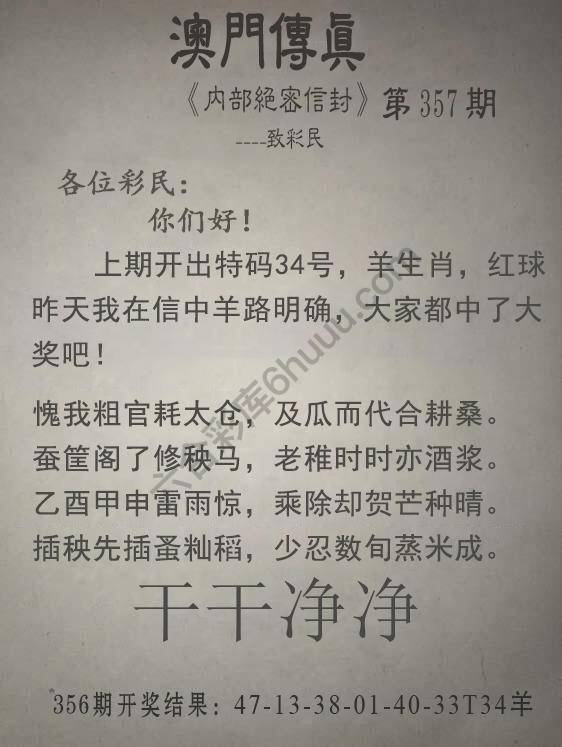 澳門傳眞
《内部絕密信封》第357期
----致彩民
各位彩民：
你们好！
上期开出特码34号，羊生肖，红球
昨天我在信中羊路明确，大家都中了大
奖吧！
愧我粗官耗太仓，及瓜而代合耕桑。
蚕筐阁了修秧马，老稚时时亦酒浆。
乙酉甲申雷雨惊，乘除却贺芒种晴。
插秧先插蚤籼稻，少忍数旬蒸米成。
干干净净
356期开奖结果：47-13-38-01-40-33T34羊
六合彩库6huuu.com